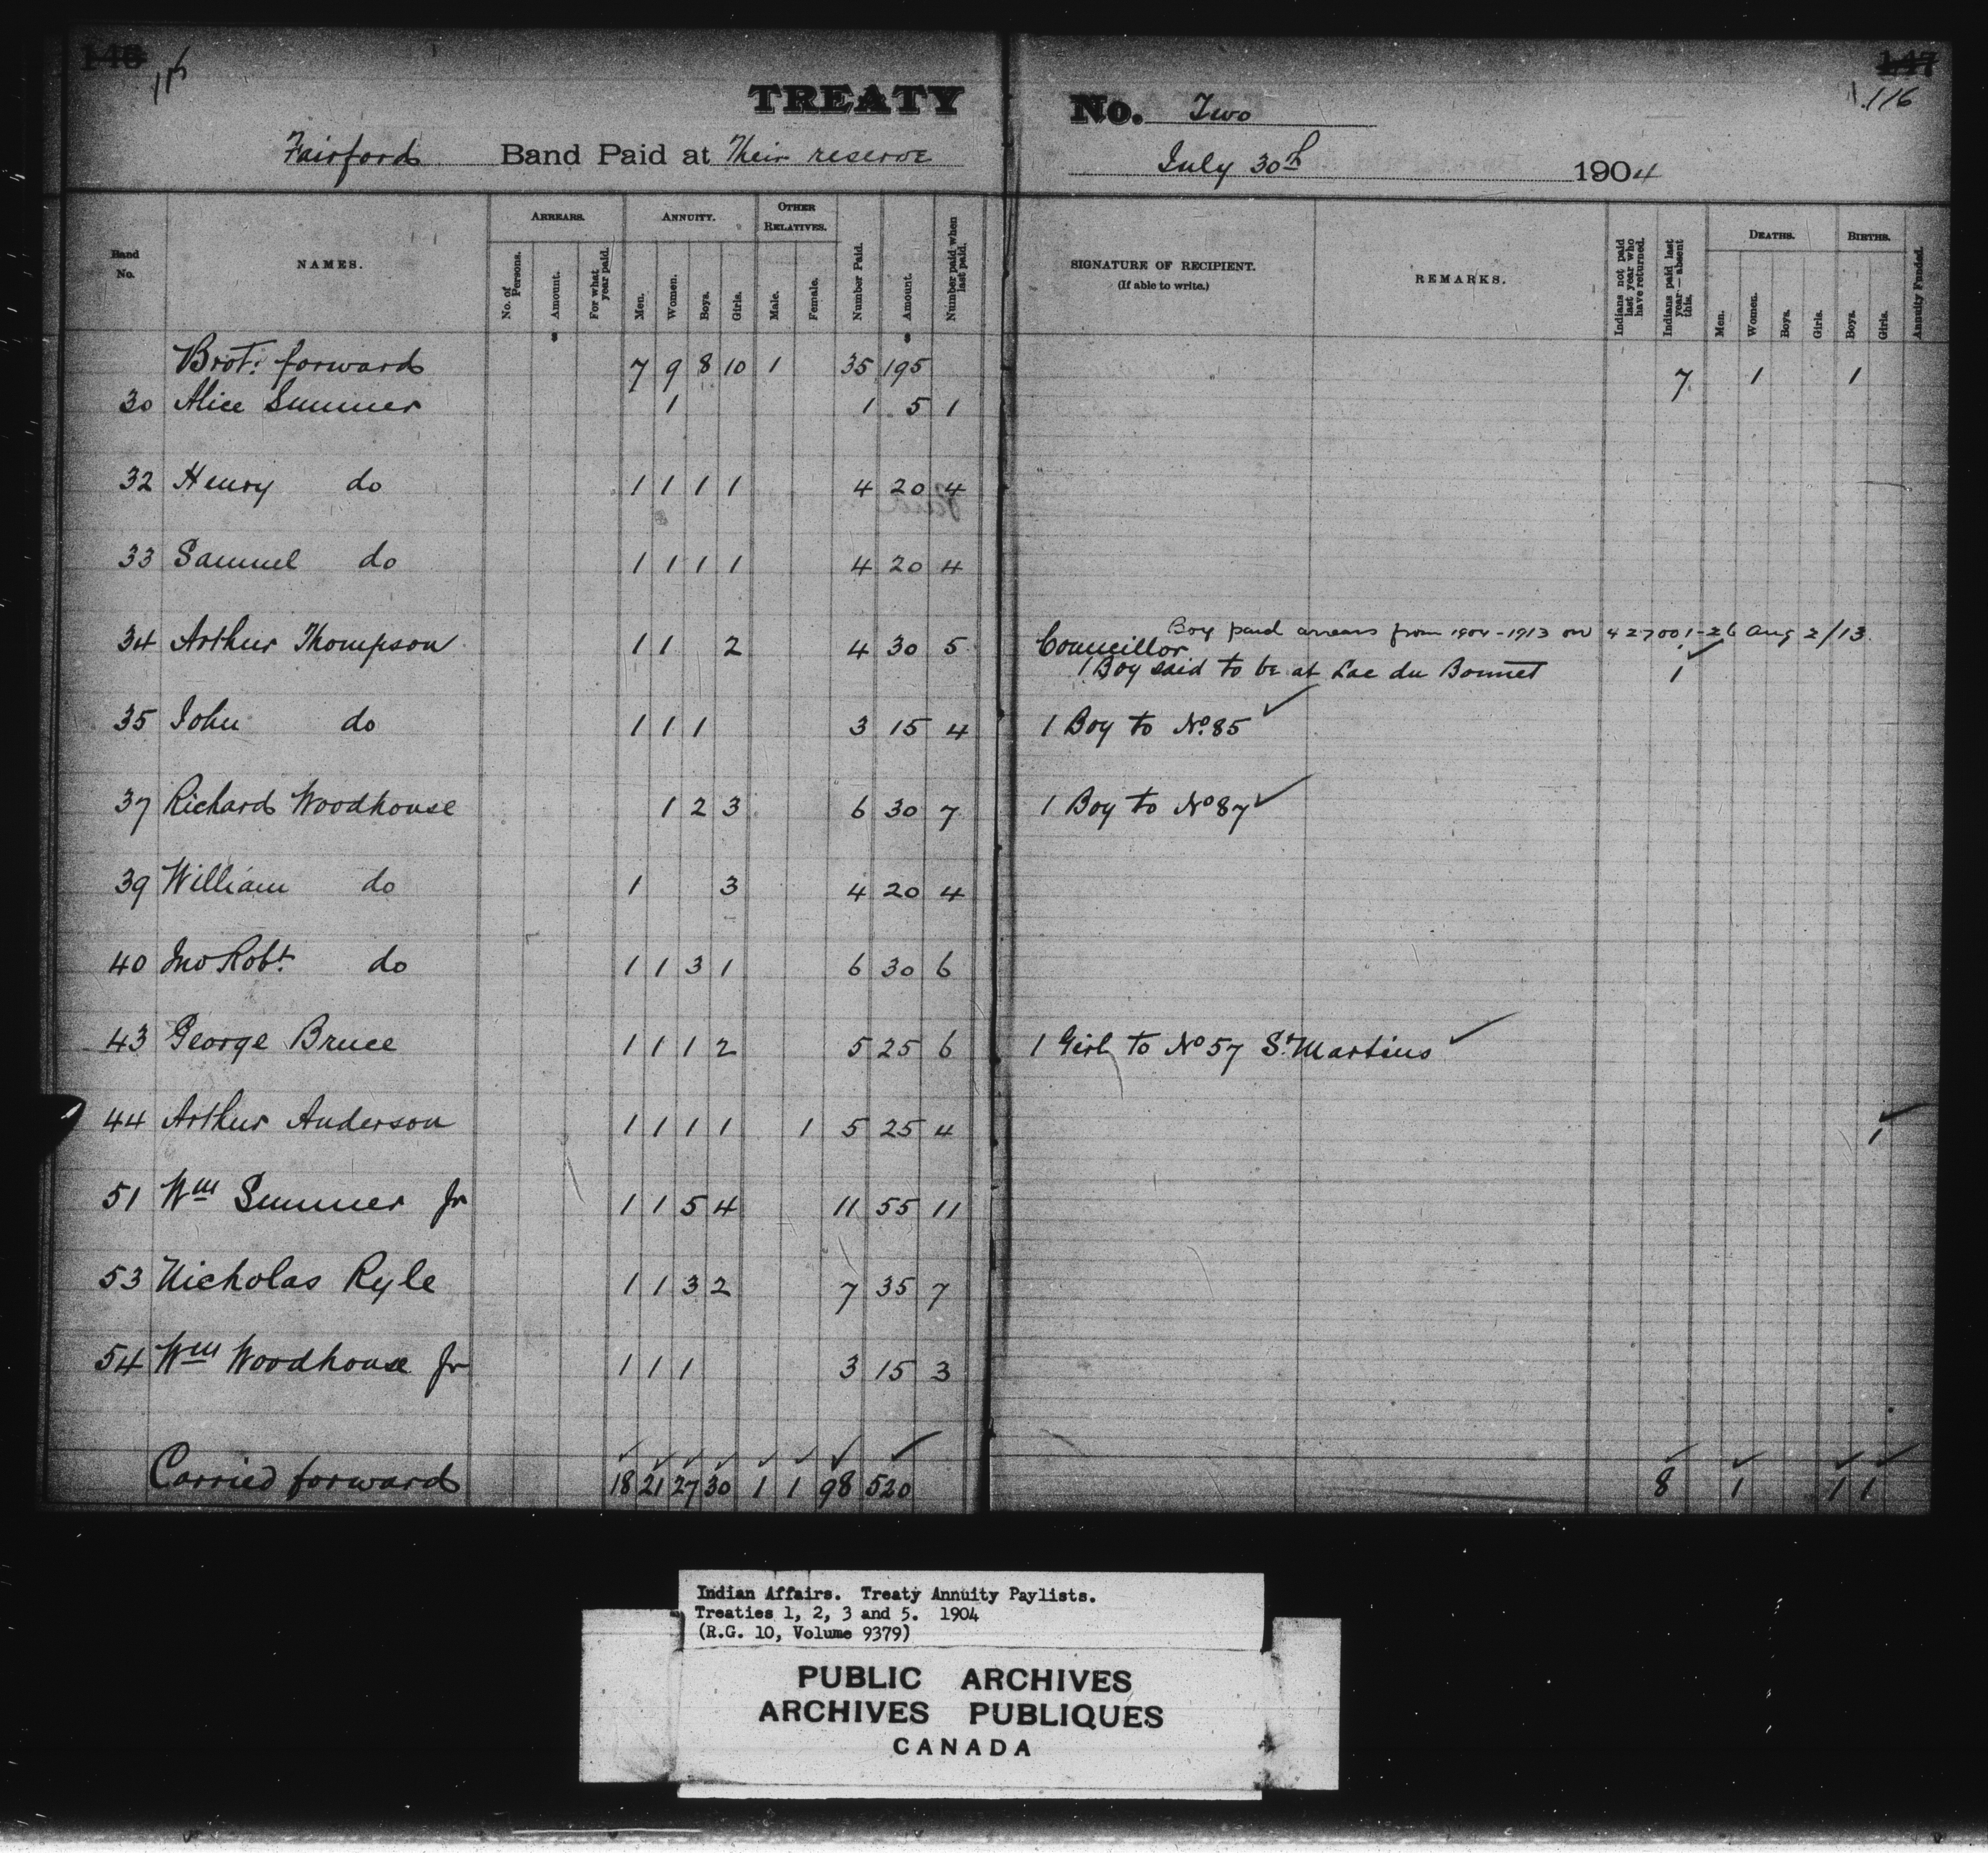 146 116 147
116
TREATY No. Two
Fairford Band Paid at Their reserve July 30th 1904
Band No. NAMES. ARREARS. No. of Persons. Amount. For what year paid. ANNUITY. Men. Women. Boys. Girls. OTHER RELATIVES. Male. Female. Number Paid. Amount. Number paid when last paid. SIGNATURE OF RECIPIENT. (If able to write.) REMARKS. Indians not paid last year who have returned. Indians paid last year—absent this. DEATHS. Men. Women. Boys. Girls. BIRTHS. Boys. Girls. Annuity Funded.
Brot. forward 7 9 8 10 1 35 195 7 1 1
30 Alice Sumner 1 1 5 1
32 Henry do 1 1 1 1 4 20 4
33 Samuel do 1 1 1 1 4 20 4
Boy paid arrears from 1904-1913 on 427001-26 Aug 2/13
34 Arthur Thompson 1 1 2 4 30 5 Councillor
1 Boy said to be at Lac du Bonnet 1
35 John do 1 1 1 3 15 4 1 Boy to No. 85
37 Richard Woodhouse 1 2 3 6 30 7 1 Boy to No 87
39 William do 1 3 4 20 4
40 Jno Robt. do 1 1 3 1 6 30 6
43 George Bruce 1 1 1 2 5 25 6 1 Girl to No 57 St. Martins
44 Arthur Anderson 1 1 1 1 1 5 25 4 1
51 Wm Sumner Jr 1 1 5 4 11 55 11
53 Nicholas Ryle 1 1 3 2 7 35 7
54 Wm Woodhouse Jr 1 1 1 3 15 3
Carried forward 18 21 27 30 1 1 98 520 8 1 1 1
Indian Affairs. Treaty Annuity Paylists.
Treaties 1, 2, 3 and 5. 1904
(R.G. 10, Volume 9379)
PUBLIC ARCHIVES
ARCHIVES PUBLIQUES
CANADA